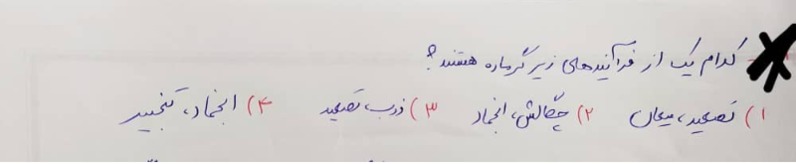 کدام یک از فرآیندهای زیر گرماده هستند؟
۱) تصعید، میعان ۲) چگالش، انجماد ۳) ذوب، تصعید ۴) انجماد، تبخیر